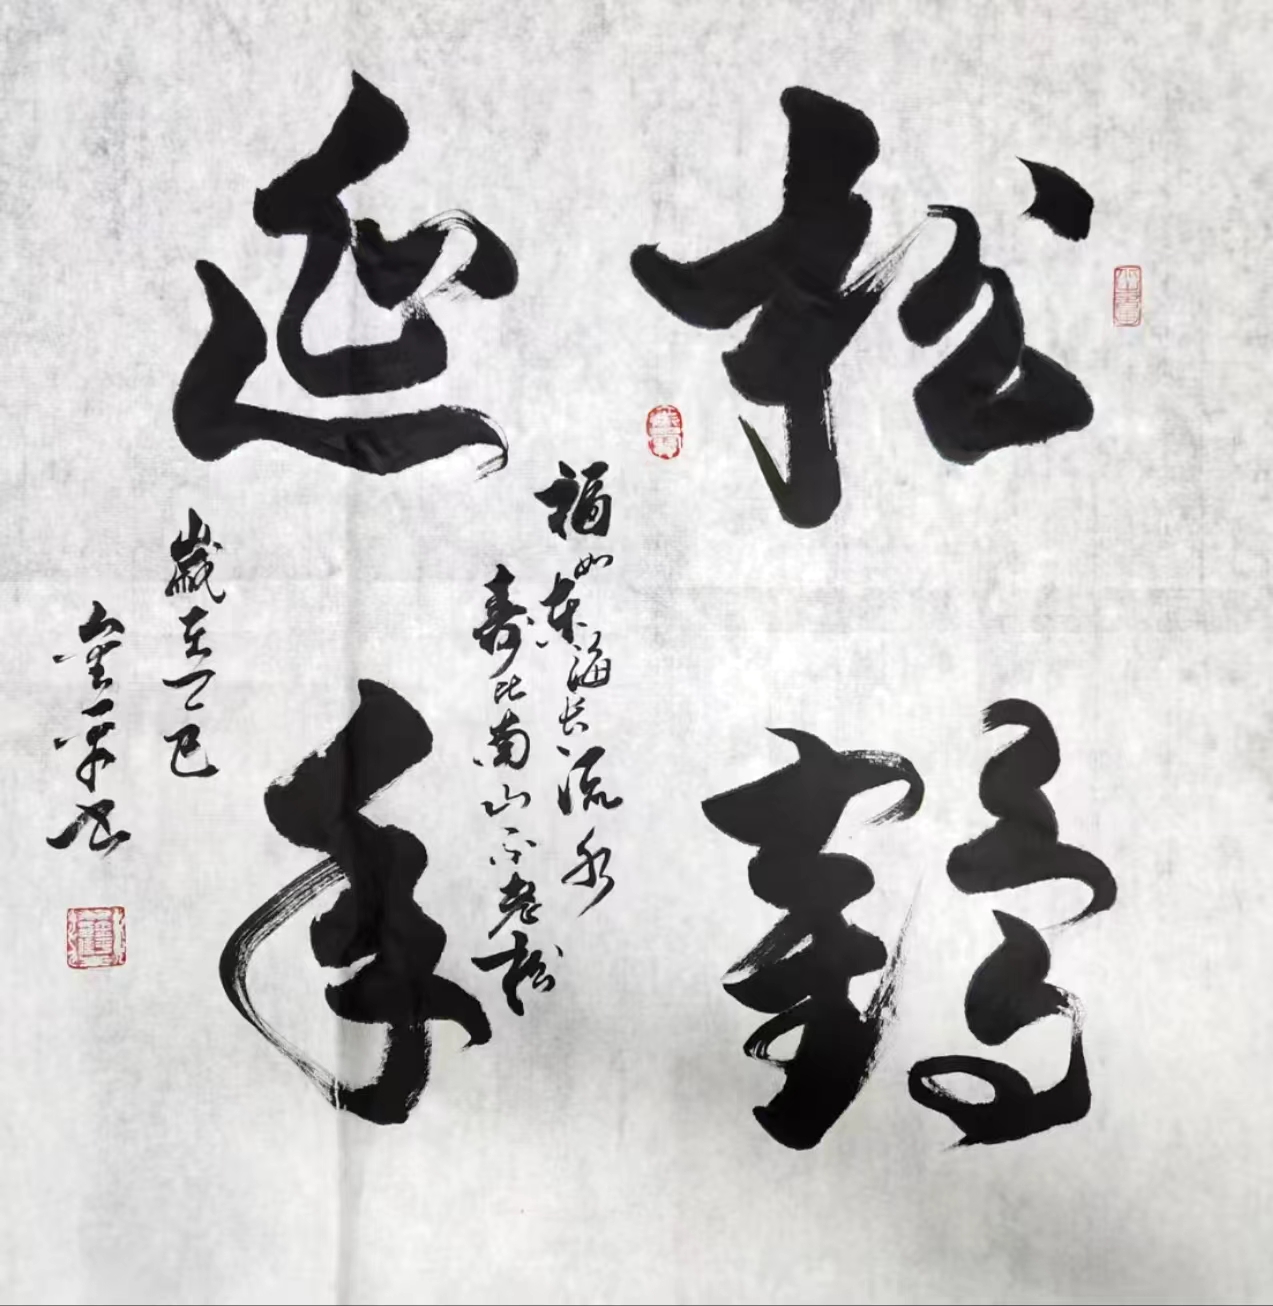 松鹤
延年
福如东海长流水
寿比南山不老松
岁在乙巳
金平书